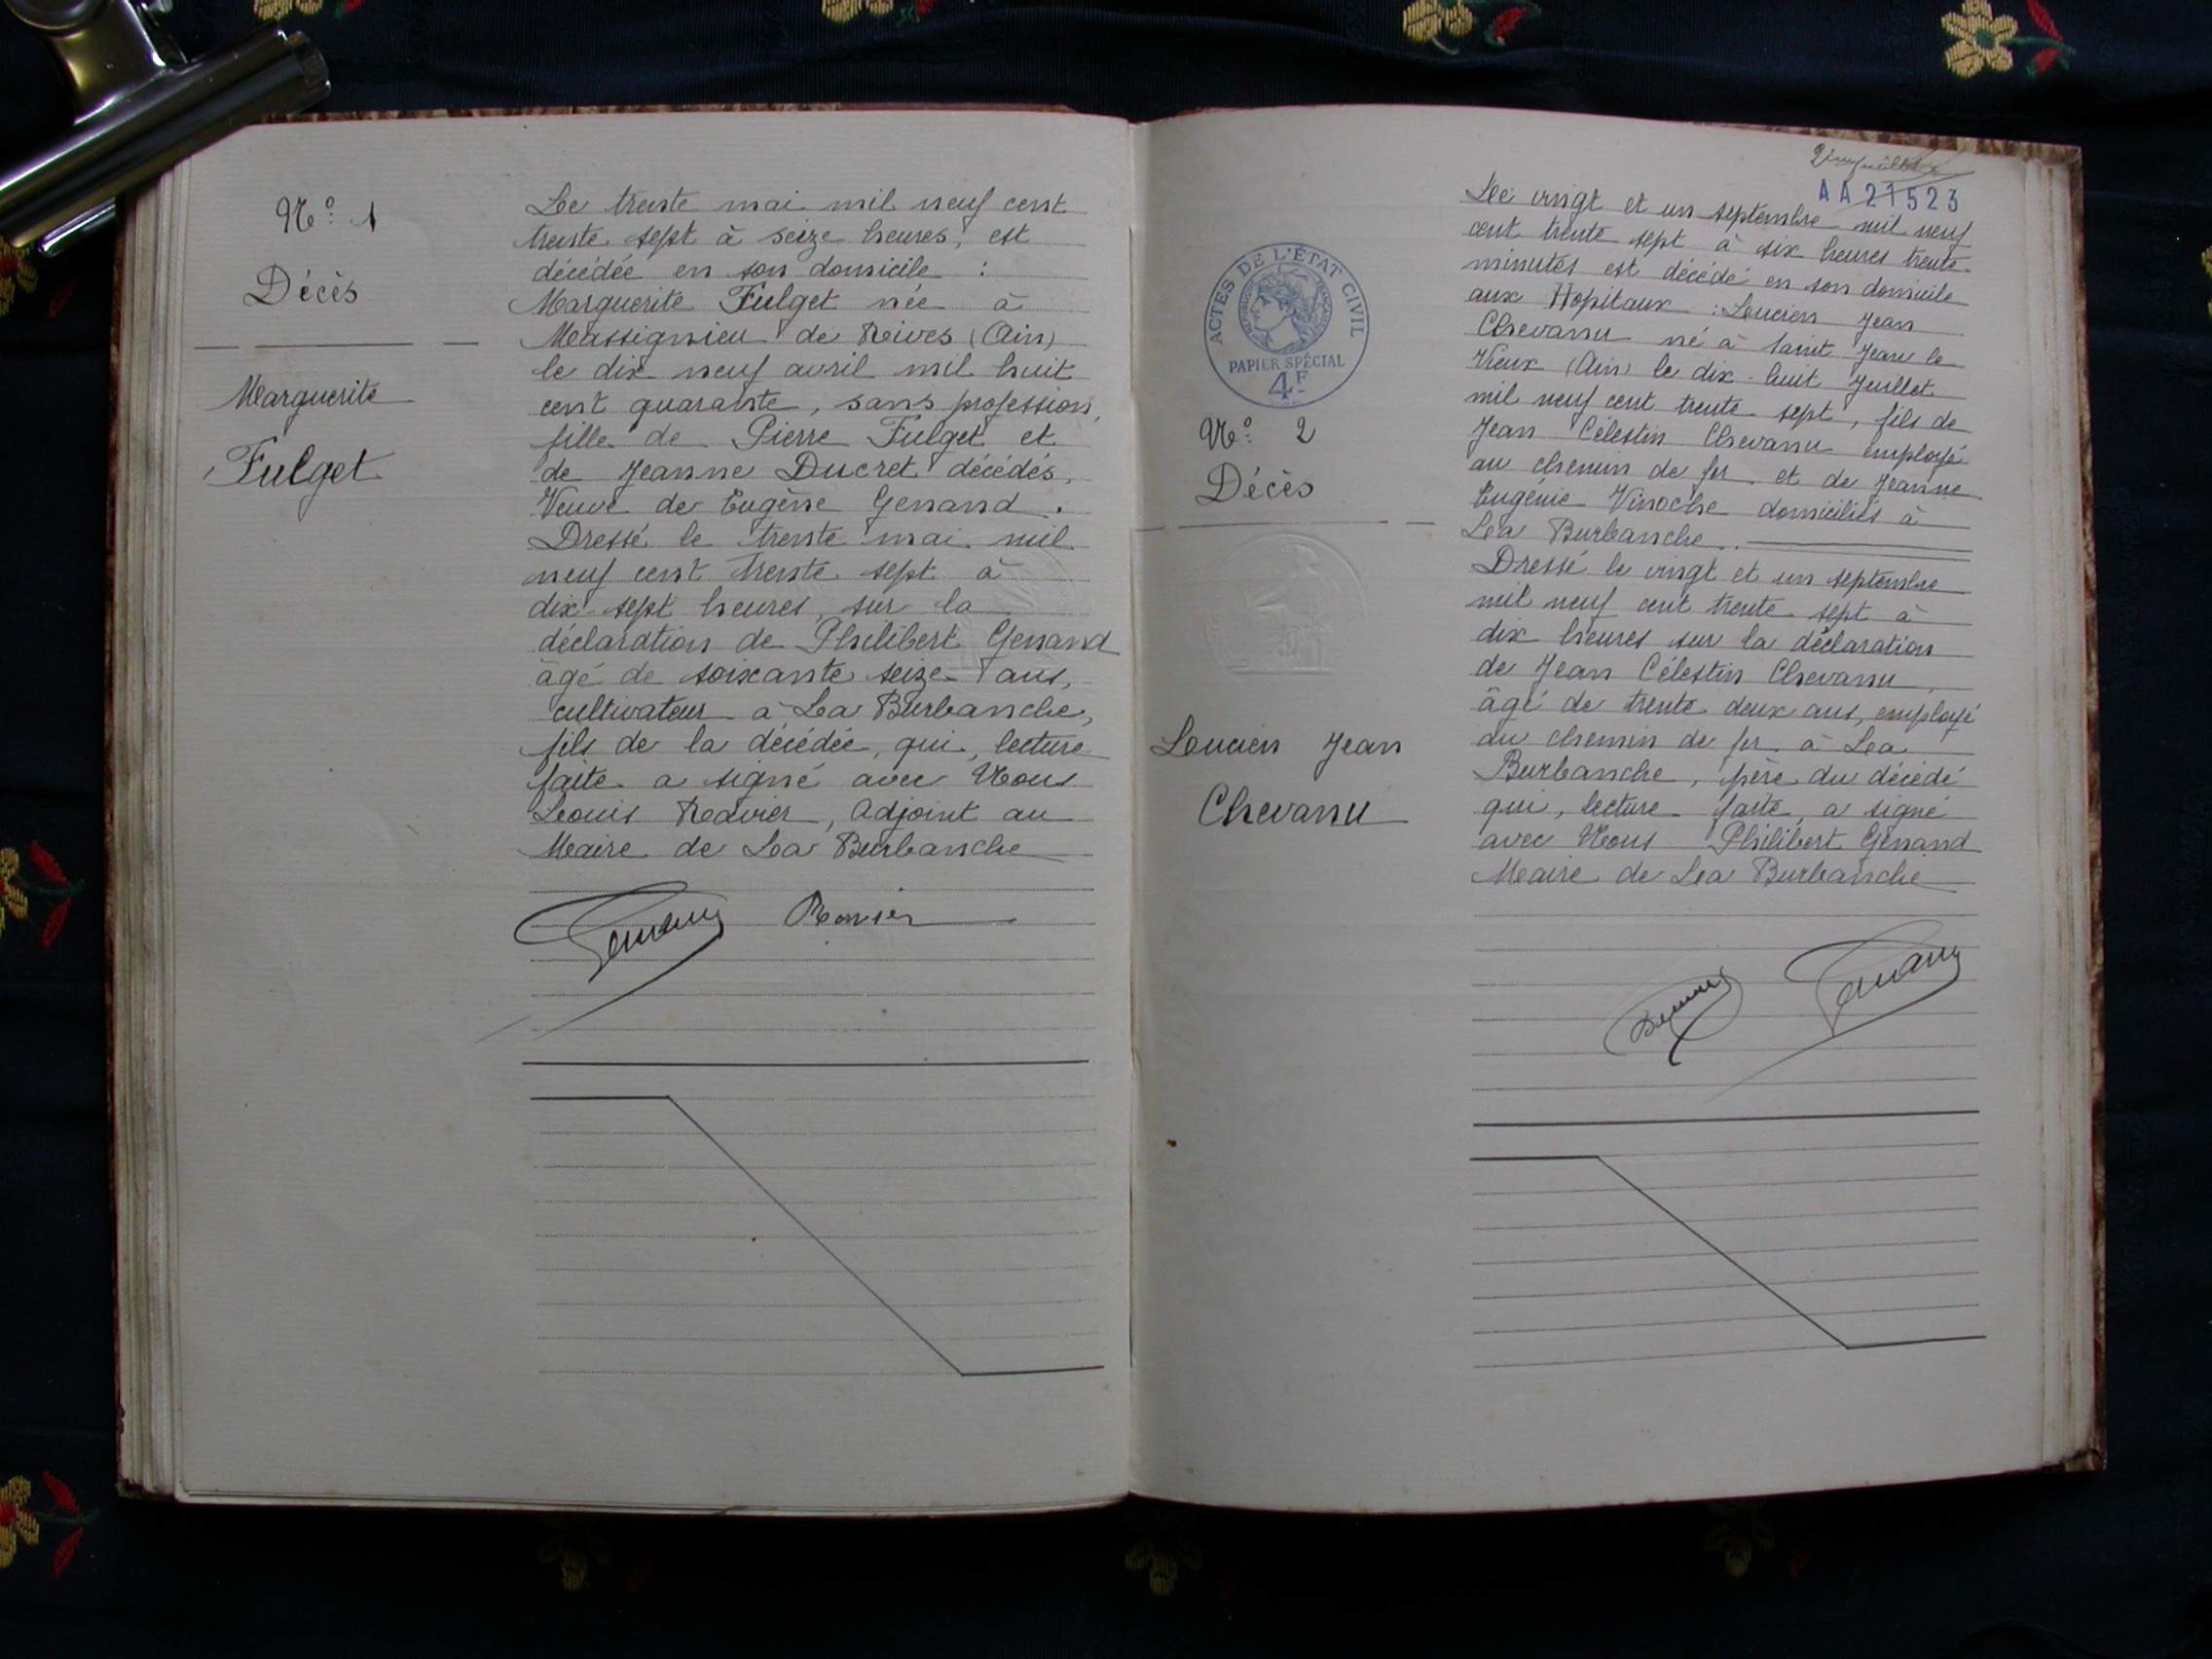 N° 1
Décès
Marguerite
Fulget
Le trente mai mil neuf cent
trente sept à seize heures, est
décédée en son domicile :
Marguerite Fulget née à
Massignieu de Rives (Ain)
le dix neuf avril mil huit
cent quarante, sans profession,
fille de Pierre Fulget et
de Jeanne Ducret décédés,
Veuve de Eugène Genand.
Dressé le trente mai mil
neuf cent trente sept à
dix-sept heures, sur la
déclaration de Philibert Genand
âgé de soixante seize ans,
cultivateur à La Burbanche,
fils de la décédée, qui, lecture
faite a signé avec Nous
Louis Ravier, Adjoint au
Maire de La Burbanche
Genand Ravier
AA21523
ACTES DE L'ÉTAT CIVIL
RÉPUBLIQUE FRANÇAISE
PAPIER SPÉCIAL
4F
N° 2
Décès
Lucien Jean
Chevanu
Le vingt et un septembre mil neuf
cent trente sept à six heures trente
minutes est décédé en son domicile
aux Hopitaux : Lucien Jean
Chevanu né à Saint Jean le
Vieux (Ain) le dix-huit Juillet
mil neuf cent trente sept, fils de
Jean Célestin Chevanu employé
au chemin de fer et de Jeanne
Eugénie Vinoche domiciliés à
La Burbanche.
Dressé le vingt et un septembre
mil neuf cent trente sept à
dix heures sur la déclaration
de Jean Célestin Chevanu,
âgé de trente deux ans, employé
du chemin de fer à La
Burbanche, père du décédé
qui, lecture faite, a signé
avec Nous Philibert Genand
Maire de La Burbanche
Genand